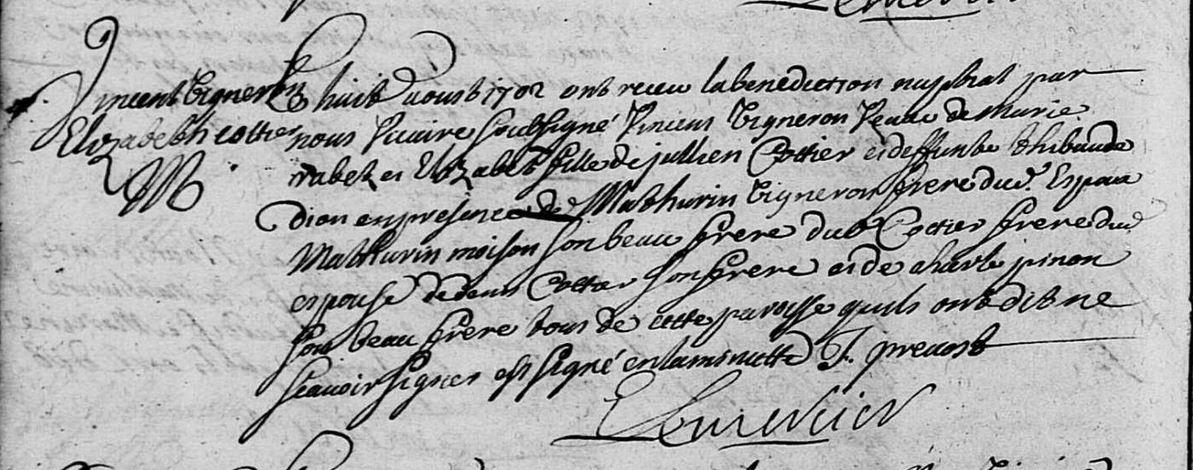 Vincent Vigneron
Elizabeth cottier
M
Le huit aoust 1702 ont receu la benediction nuptial par
nous Vicaire soubsigné Vincent Vigneron Veau de Marie
rabet et Elizabet fille de jullien Cottier et deffunte thibaude
dion en presence de Mathurin Vigneron frere dud. Espoux
Mathurin moison son beau frere dud Cottier frere dud
espouse de denis Cottier son frere et de charle pinon
son beau frere tous de cette paroisse quils ont dit ne
scavoir signer est signé en la minutte J. prevost
Lemercier